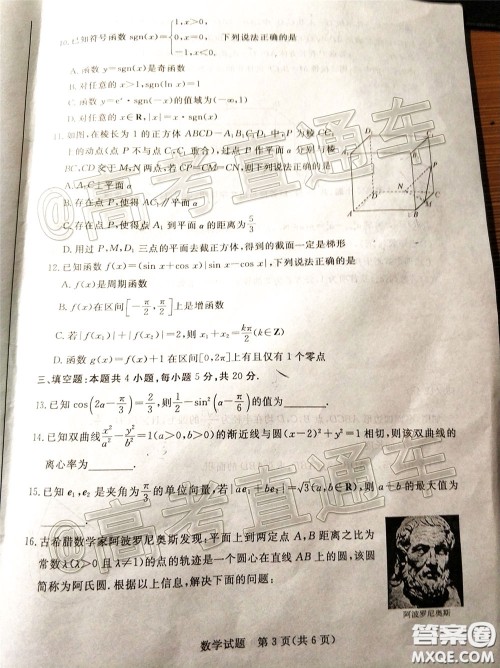 1, x>0,
10. 已知符号函数 sgn(x)={0, x=0, 下列说法正确的是
-1, x<0.
A. 函数 y=sgn(x)是奇函数
B. 对任意的 x>1, sgn(ln x)=1
C. 函数 y=eˣ·sgn(-x)的值域为(-∞,1)
D. 对任意的 x∈R, |x|=x·sgn(x)
11. 如图,在棱长为 1 的正方体 ABCD-A₁B₁C₁D₁ 中,P 为棱 CC₁
上的动点(点 P 与点 C,C₁ 不重合),过点 P 作平面 α 分别与棱
BC,CD 交于 M,N 两点,若 CP=CM=CN,则下列说法正确的是
A. A₁C⊥平面 α
B. 存在点 P,使得 AC₁∥平面 α
C. 存在点 P,使得点 A₁ 到平面 α 的距离为 5/3
D. 用过 P,M,D₁ 三点的平面去截正方体,得到的截面一定是梯形
12. 已知函数 f(x)=(sin x+cos x)|sin x-cos x|,下列说法正确的是
A. f(x)是周期函数
B. f(x)在区间[-π/2, π/2]上是增函数
C. 若|f(x₁)|+|f(x₂)|=2,则 x₁+x₂=kπ/2(k∈Z)
D. 函数 g(x)=f(x)+1 在区间[0,2π]上有且仅有 1 个零点
三、填空题:本题共 4 小题,每小题 5 分,共 20 分.
13. 已知 cos(2α-π/3)=2/3,则 1/2-sin²(α-π/6)的值为______.
14. 已知双曲线 x²/a²-y²/b²=1(a>0,b>0)的渐近线与圆(x-2)²+y²=1 相切,则该双曲线的
离心率为______.
15. 已知 e₁,e₂ 是夹角为 π/3 的单位向量,若|ae₁+be₂|=√3(a,b∈R),则 a+b 的最大值为
______.
16. 古希腊数学家阿波罗尼奥斯发现:平面上到两定点 A,B 距离之比为
常数 λ(λ>0 且 λ≠1)的点的轨迹是一个圆心在直线 AB 上的圆,该圆
简称为阿氏圆.根据以上信息,解决下面的问题:
阿波罗尼奥斯
数学试题 第 3 页(共 6 页)
@高考直通车
@高考直通车
答案圈
MXQE.COM